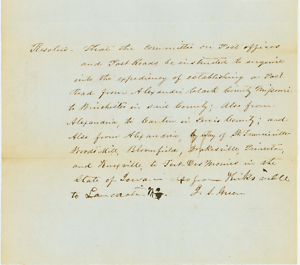 Resolved - That the Committee on Post offices
and Post Roads be instructed to enquire
into the expediency of establishing a Post
Road from Alexandria Clark County Missouri
to Winchester in said County; also from
Alexandria, to Canton in Lewis County; and
Also from Alexandria, by way of St Francisville
Woods Mill, Bloomfield, Drakesville,
and to Fort Des Moines in the
State of Iowa from
to Lancaster Mo. J. S. Green